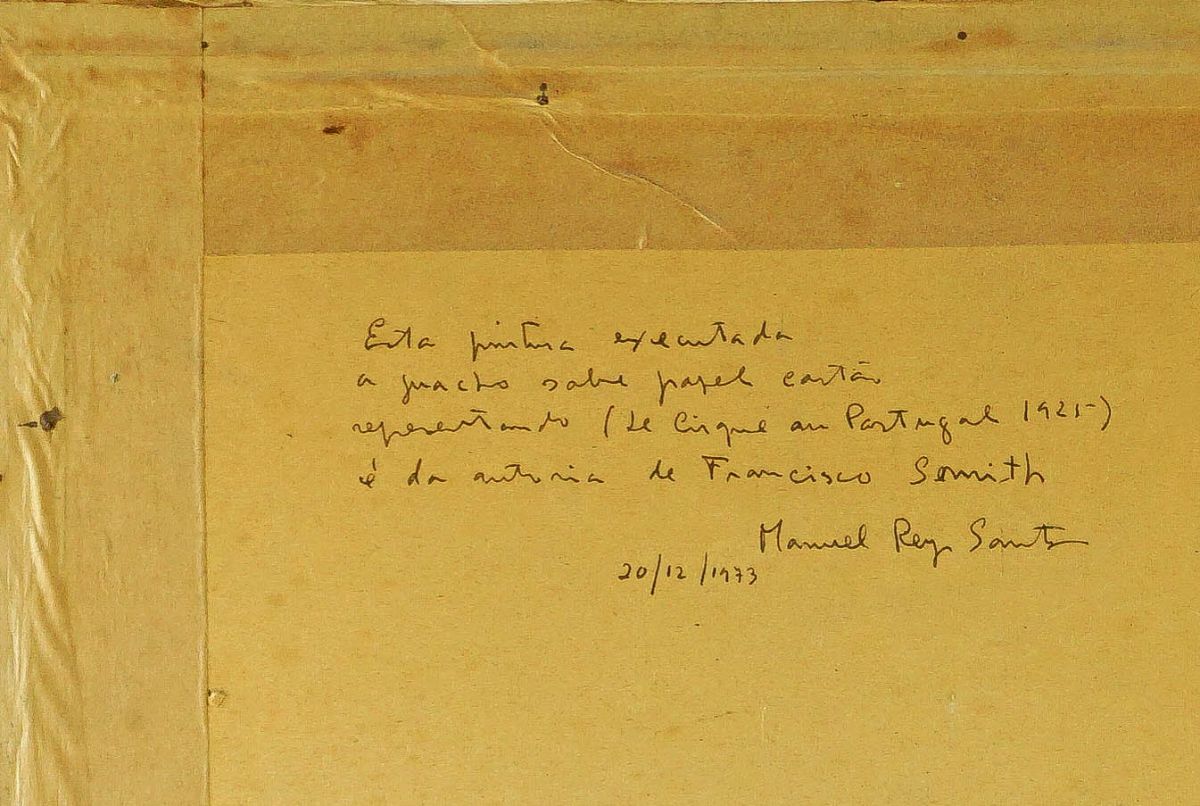 Esta pintura executada
a guacho sobre papel cartão
representando (Le Cirque au Portugal 1925)
é da autoria de Francisco Semith
Manuel Rey Santos
20/12/1973